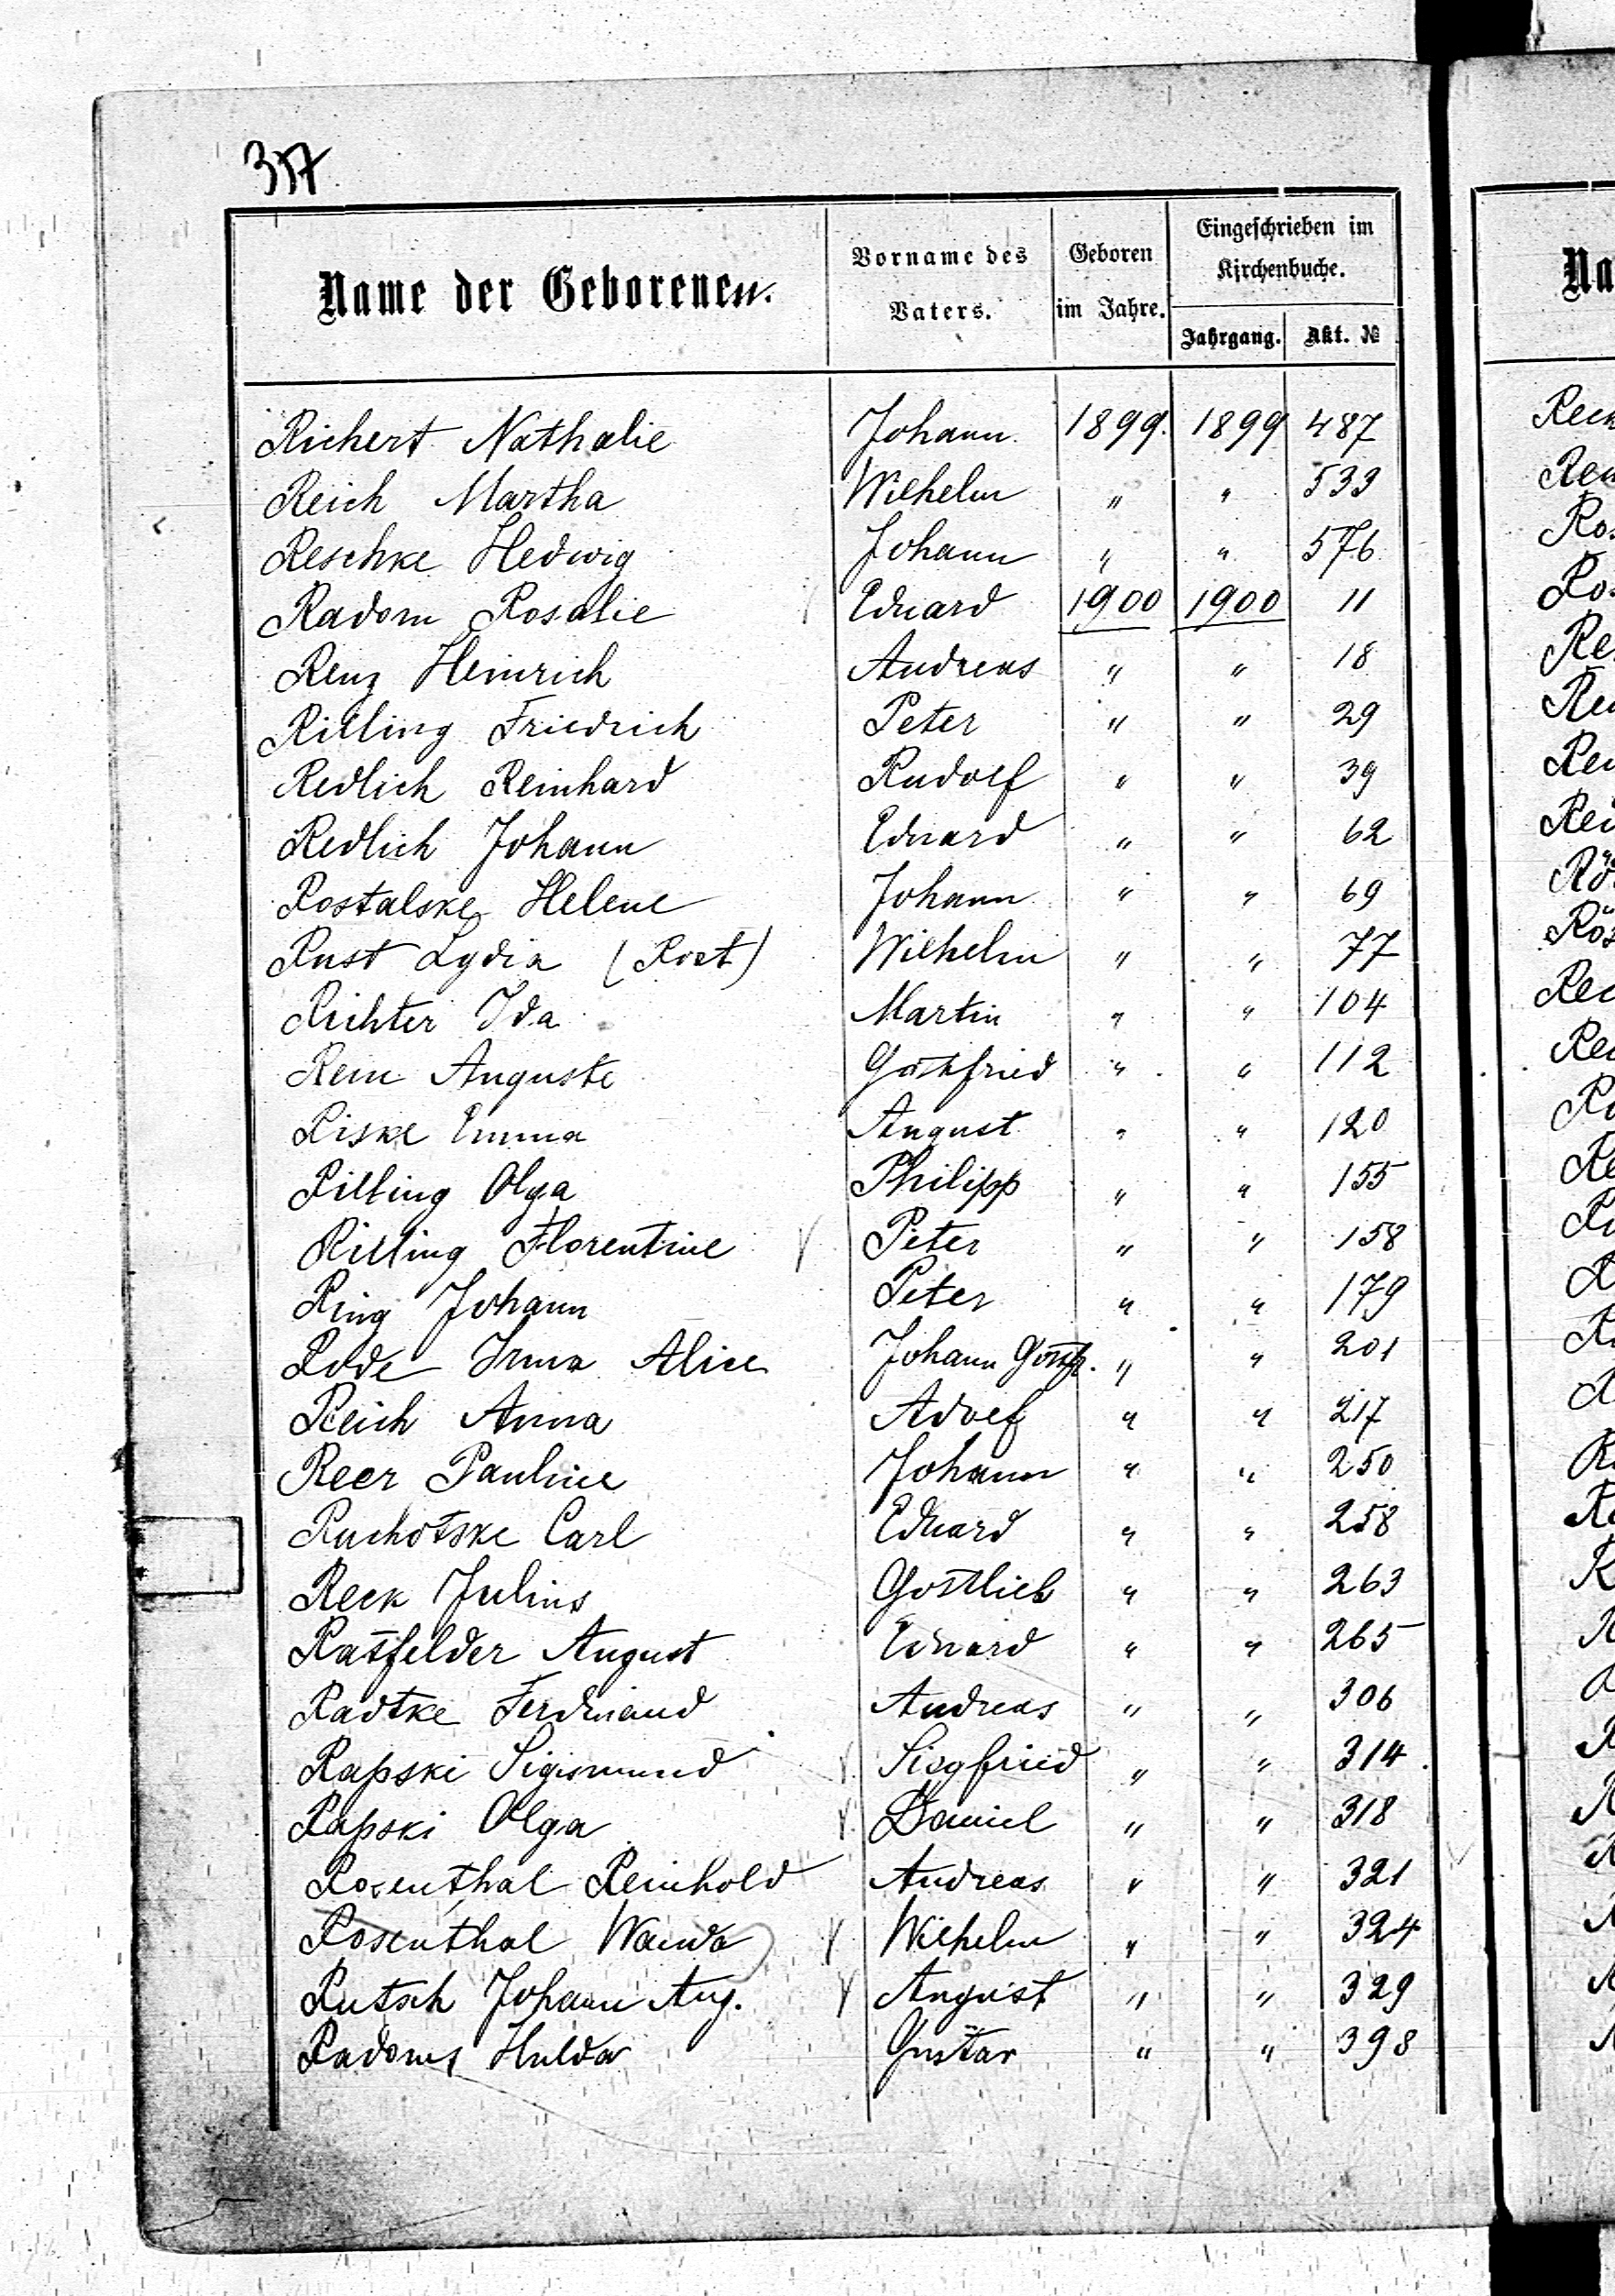 357
Name der Geborenen. Vorname des Vaters. Geboren im Jahre. Eingeschrieben im Kirchenbuche. Jahrgang. Akt. №
Richert Nathalie Johann 1899. 1899 487
Reich Martha Wilhelm " " 533
Reschke Hedwig Johann " " 576
Radom Rosalie Eduard 1900 1900 11
Renz Heinrich Andreas " " 18
Rilling Friedrich Peter " " 29
Redlich Reinhard Rudolf " " 39
Redlich Johann Eduard " " 62
Rostalske Helene Johann " " 69
Rust Lydia (Rost) Wilhelm " " 77
Richter Ida Martin " " 104
Rein Auguste Gottfried " " 112
Riske Emma August " " 120
Rilling Olga Philipp " " 155
Rilling Florentine Peter " " 158
Ring Johann Peter " " 179
Rode Irma Alice Johann Gottfr. " " 201
Reich Anna Adolf " " 217
Reer Pauline Johann " " 250
Ruchotske Carl Eduard " " 258
Reck Julius Gottlieb " " 263
Ratfelder August Eduard " " 265
Radtke Ferdinand Andreas " " 306
Rapski Sigismund Siegfried " " 314
Rapski Olga Daniel " " 318
Rosenthal Reinhold Andreas " " 321
Rosenthal Wanda Wilhelm " " 324
Rutsch Johann Aug. August " " 329
Radoms Hulda Gustav " " 398